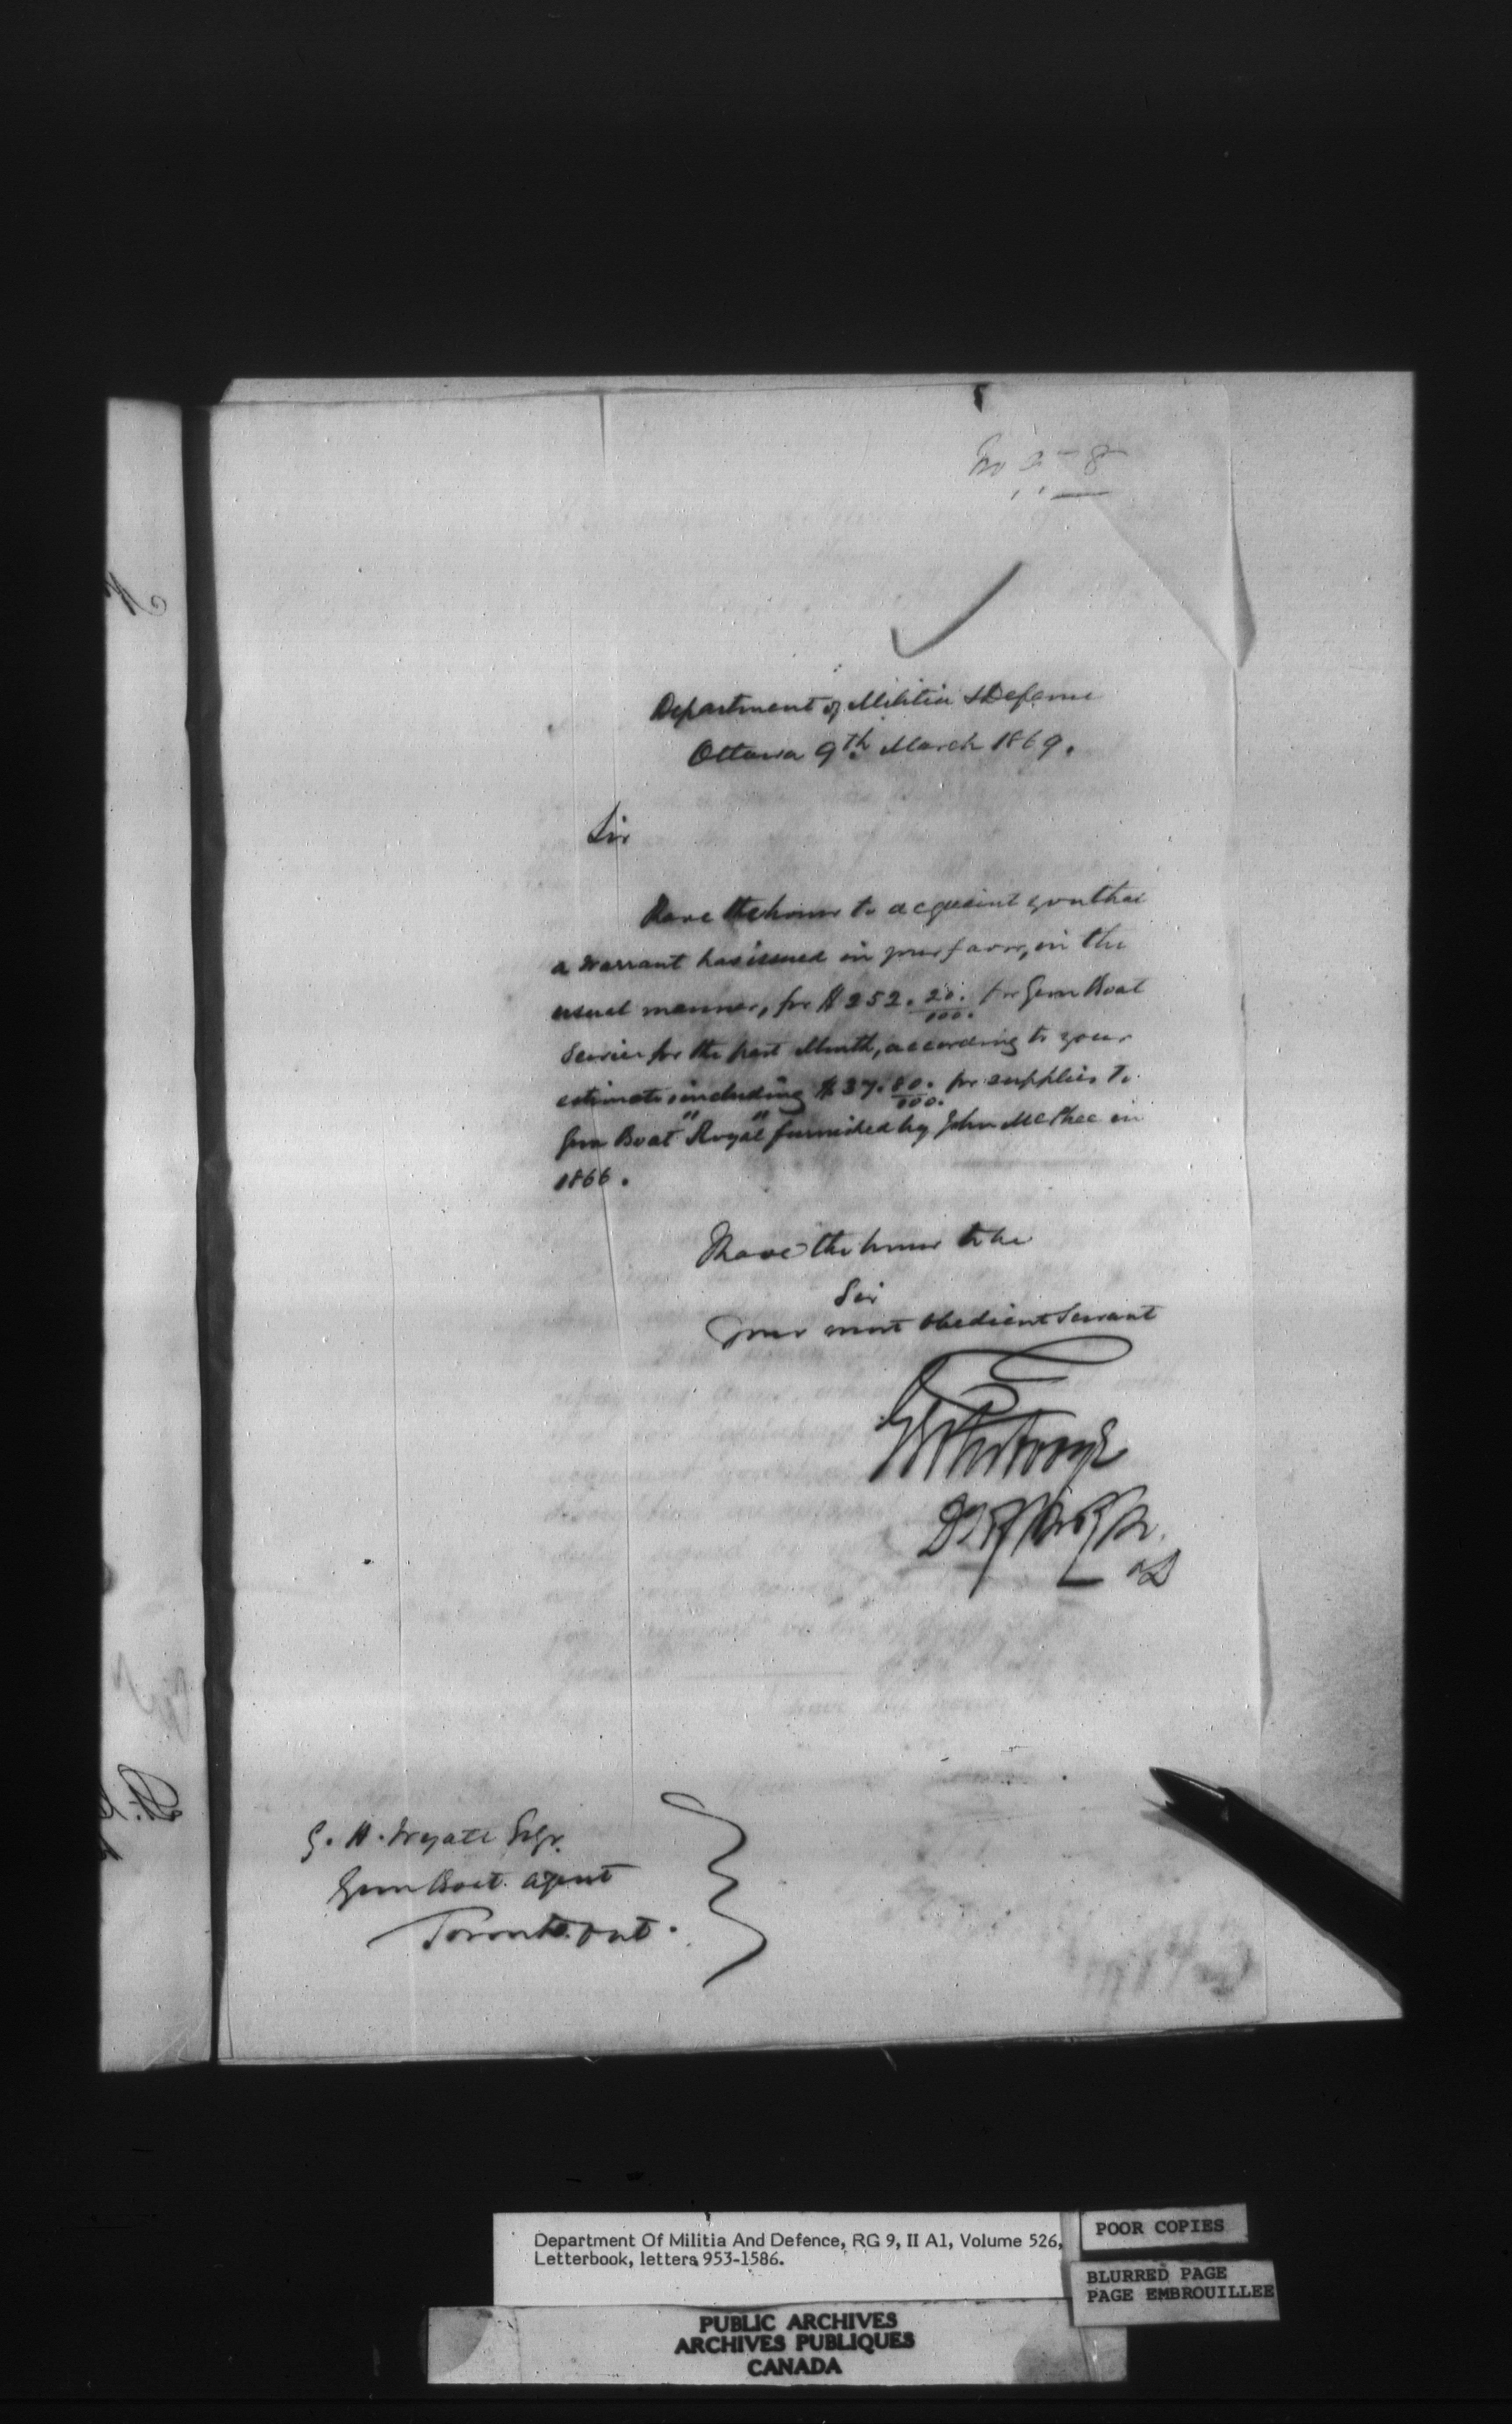 Department of Militia & Defence
Ottawa 9th March 1869.
Sir
I have the honor to acquaint you that
a warrant has issued in your favor, in the
usual manner, for $252. 20/100. for Gun Boat
Service for the past Month, according to your
estimate, including $37. 80/100. for supplies to
Gun Boat "Royal" furnished by John McPhee in
1866.
I have the honor to be
Sir
Your most obedient Servant
G. H. Wyatt Esqr.
Gun Boat Agent
Toronto. Ont.
Department Of Militia And Defence, RG 9, II A1, Volume 526,
Letterbook, letters 953-1586.
POOR COPIES
BLURRED PAGE
PAGE EMBROUILLEE
PUBLIC ARCHIVES
ARCHIVES PUBLIQUES
CANADA